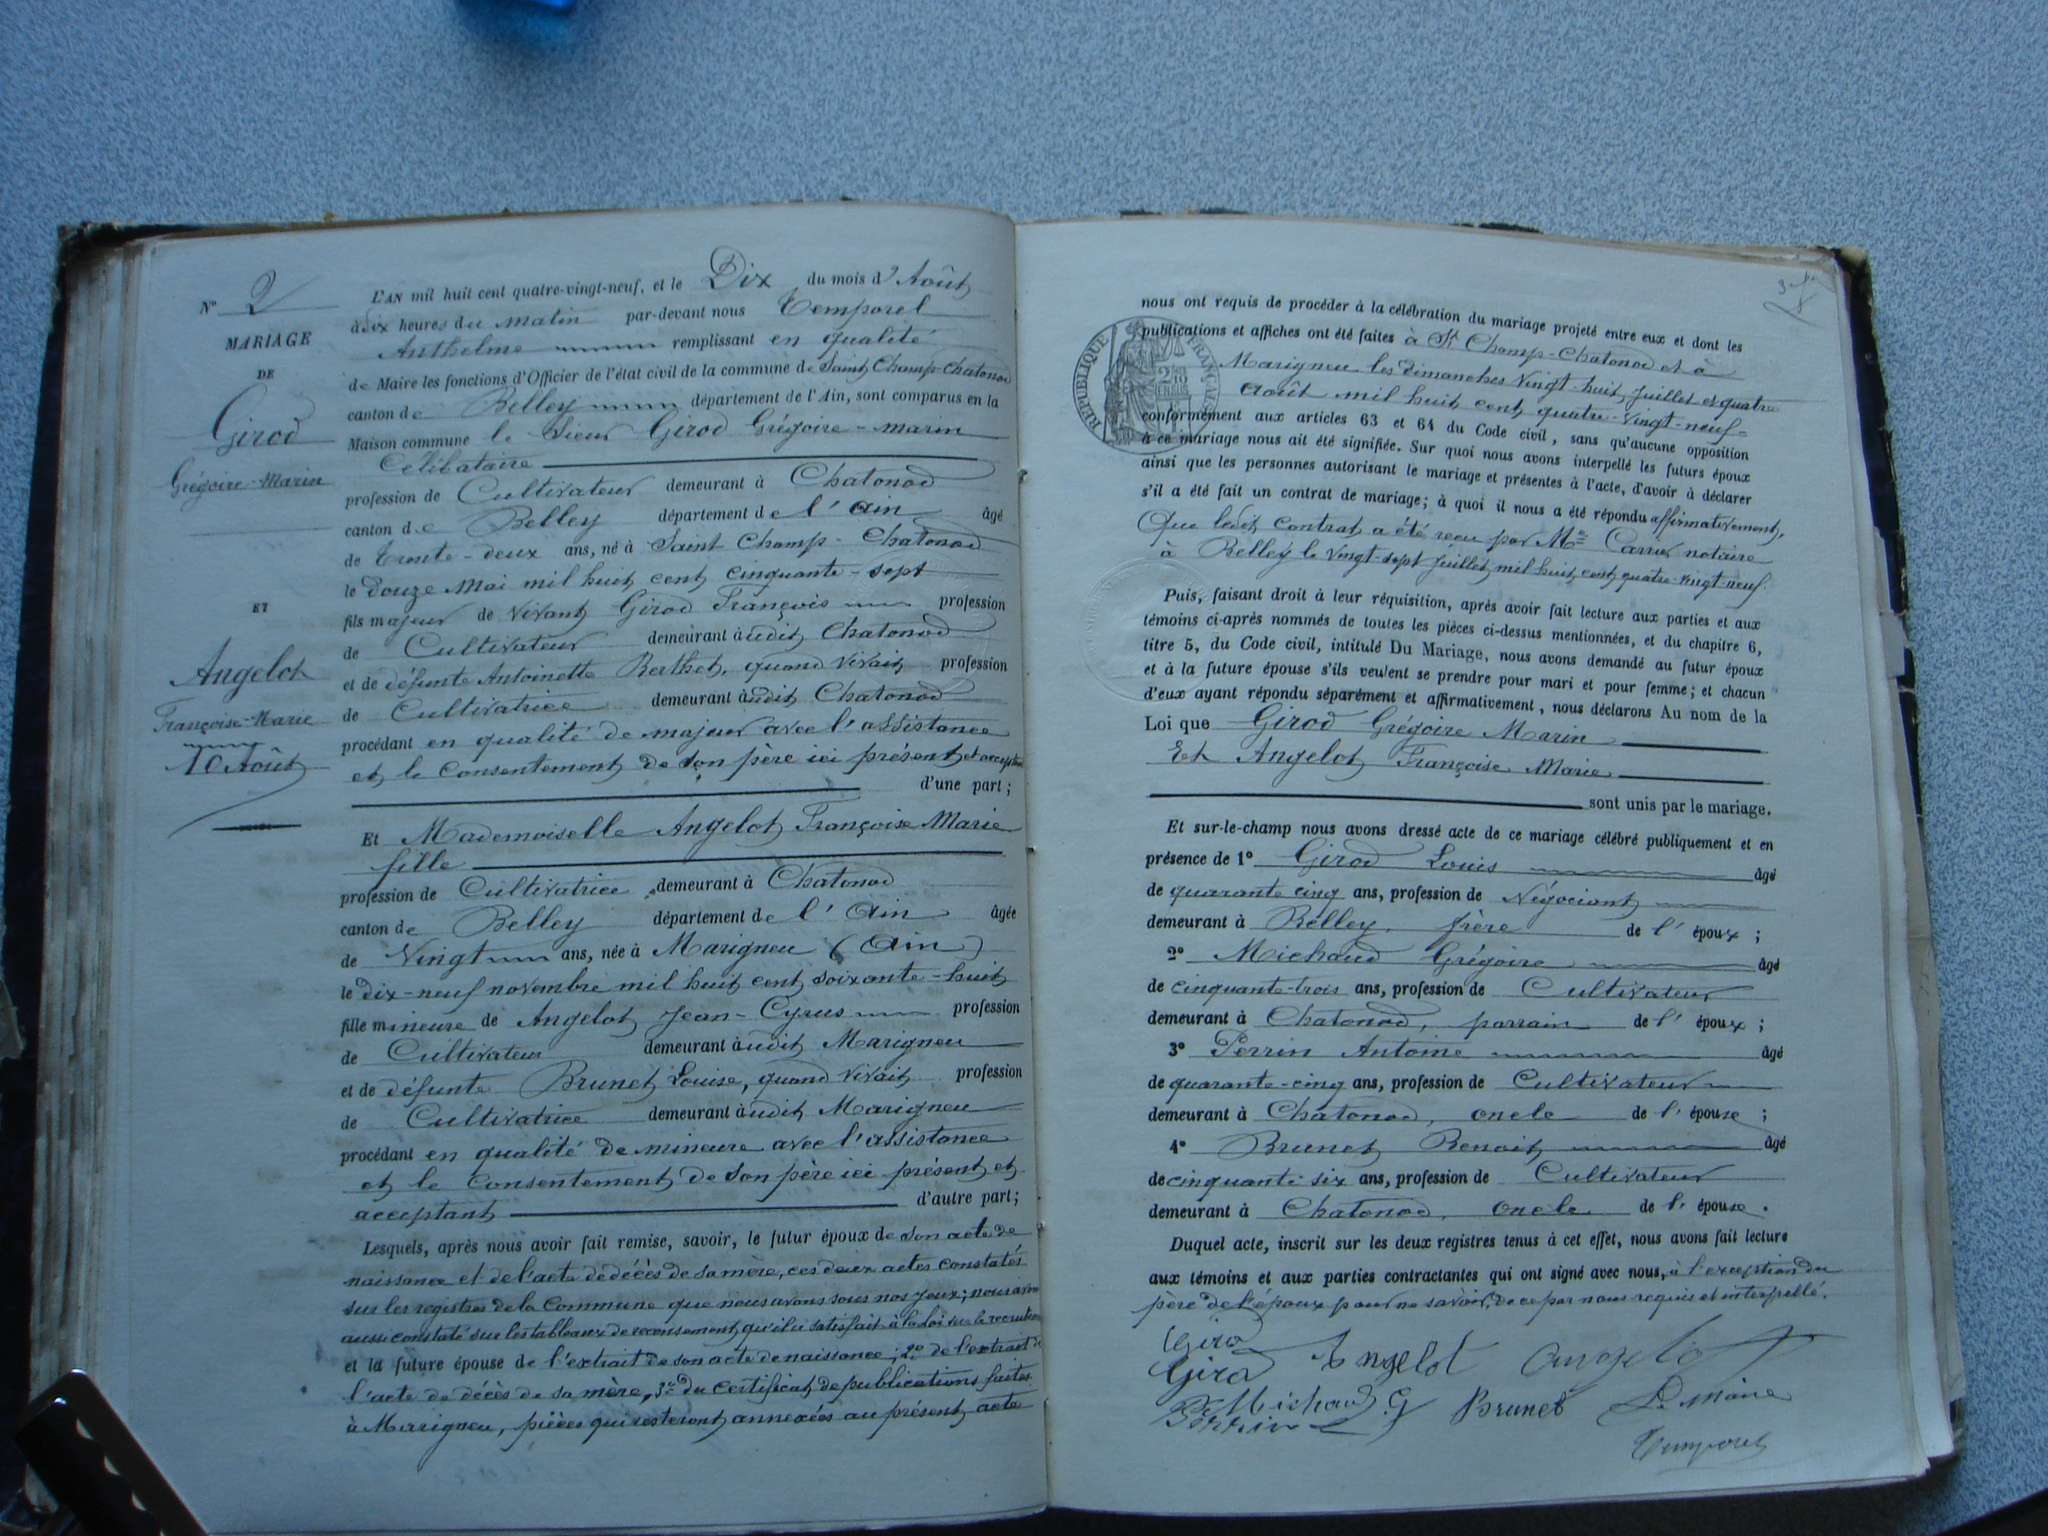 Nº 2
MARIAGE
DE
Girod
Grégoire-Marin
ET
Angelot
Françoise-Marie
10 Août
L'AN mil huit cent quatre-vingt-neuf, et le Dix du mois d'Août
à dix heures du matin par-devant nous Temporel
Anthelme remplissant en qualité
de Maire les fonctions d'Officier de l'état civil de la commune de Saint Champ-Chatonod
canton de Belley département de l'Ain, sont comparus en la
Maison commune le Sieur Girod Grégoire-Marin
Célibataire
profession de Cultivateur demeurant à Chatonod
canton de Belley département de l'Ain âgé
de Trente-deux ans, né à Saint Champ-Chatonod
le Douze Mai mil huit cent cinquante-sept
fils majeur de vivant Girod François profession
de Cultivateur demeurant àudit Chatonod
et de défunte Antoinette Berthet, quand vivait profession
de Cultivatrice demeurant àudit Chatonod
procédant en qualité de majeur avec l'assistance
et le consentement de son père ici présent et acceptant
d'une part;
Et Mademoiselle Angelot Françoise Marie
fille
profession de Cultivatrice demeurant à Chatonod
canton de Belley département de l'Ain âgée
de Vingt ans, née à Marigneu (Ain)
le dix-neuf novembre mil huit cent soixante-huit
fille mineure de Angelot Jean-Cyrus profession
de Cultivateur demeurant àudit Marigneu
et de défunte Brunet Louise, quand vivait profession
de Cultivatrice demeurant àudit Marigneu
procédant en qualité de mineure avec l'assistance
et le consentement de son père ici présent et
acceptant d'autre part;
Lesquels, après nous avoir fait remise, savoir, le futur époux de son acte de
naissance et de l'acte de décès de sa mère, ces deux actes constatés
sur les registres de la commune que nous avons sous nos yeux; nous avons
aussi constaté sur les tableaux de recensement qu'il a satisfait à la loi sur le recrutement
et la future épouse de l'extrait de son acte de naissance; 2º de l'extrait de
l'acte de décès de sa mère, 3º du certificat de publications faites
à Marigneu, pièces qui resteront annexées au présent acte
nous ont requis de procéder à la célébration du mariage projeté entre eux et dont les
publications et affiches ont été faites à St Champ-Chatonod et à
Marigneu les dimanches vingt-huit juillet et quatre
Août mil huit cent quatre-vingt-neuf
RÉPUBLIQUE FRANÇAISE
conformément aux articles 63 et 64 du Code civil, sans qu'aucune opposition
à ce mariage nous ait été signifiée. Sur quoi nous avons interpellé les futurs époux
ainsi que les personnes autorisant le mariage et présentes à l'acte, d'avoir à déclarer
s'il a été fait un contrat de mariage; à quoi il nous a été répondu affirmativement,
Que ledit contrat a été reçu par Me Carrier notaire
à Belley le vingt-sept juillet mil huit cent quatre-vingt-neuf.
Puis, faisant droit à leur réquisition, après avoir fait lecture aux parties et aux
témoins ci-après nommés de toutes les pièces ci-dessus mentionnées, et du chapitre 6,
titre 5, du Code civil, intitulé Du Mariage, nous avons demandé au futur époux
et à la future épouse s'ils veulent se prendre pour mari et pour femme; et chacun
d'eux ayant répondu séparément et affirmativement, nous déclarons Au nom de la
Loi que Girod Grégoire Marin
Et Angelot Françoise Marie
sont unis par le mariage.
Et sur-le-champ nous avons dressé acte de ce mariage célébré publiquement et en
présence de 1º Girod Louis âgé
de quarante cinq ans, profession de Négociant
demeurant à Belley, frère de l'époux;
2º Michaud Grégoire âgé
de cinquante-trois ans, profession de Cultivateur
demeurant à Chatonod, parrain de l'époux;
3º Perrin Antoine âgé
de quarante-cinq ans, profession de Cultivateur
demeurant à Chatonod, oncle de l'épouse;
4º Brunet Benoit âgé
de cinquante six ans, profession de Cultivateur
demeurant à Chatonod, oncle de l'épouse.
Duquel acte, inscrit sur les deux registres tenus à cet effet, nous avons fait lecture
aux témoins et aux parties contractantes qui ont signé avec nous, à l'exception du
père de l'époux pour ne savoir, de ce par nous requis et interpellé.
Girod
Girod Angelot Angelot
Michaud G Brunet Le Maire
Perrin
Temporel